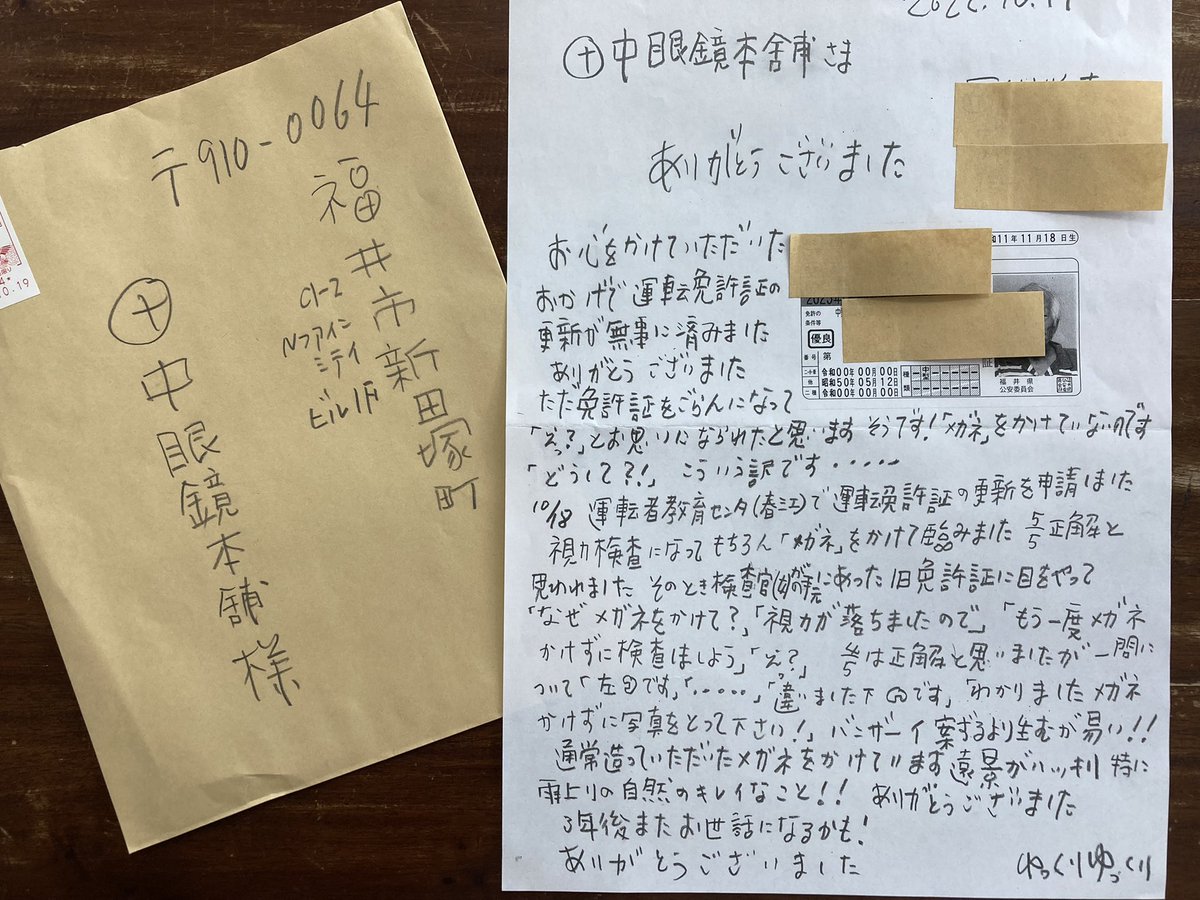 〒910-0064
福井市新田塚町
C1-2
Nファイン
ミテイ
ビル1F
㊉中眼鏡本舗様
10.19
㊉中眼鏡本舗さま
ありがとうございました
お心をかけていただいた
おかげで運転免許証の
更新が無事に済みました
ありがとうございました
和11年11月18日生
免許の
条件等
中
優良
番号 第
二・小・原 令和00年00月00日
他 昭和50年05月12日
二種 令和00年00月00日
種類
中型
福井県
公安委員会
ただ免許証をごらんになって
「えっ?」とお思いになられたと思います そうです!「メガネ」をかけていないのです
「どうして?!」 こういう訳です・・・・・
10/18 運転者教育センタ(春江)で運転免許証の更新を申請しました
視力検査になってもちろん「メガネ」をかけて臨みました 5/5正解と
思われました そのとき検査官にあった旧免許証に目をやって
「なぜメガネをかけて?」「視力が落ちましたので」「もう一度メガネ
かけずに検査しましよう」「えっ?」 4/5は正解と思いましたが一問に
ついて「左です」「・・・・・」「違いました下です」「わかりましたメガネ
かけずに写真をとって下さい!」バンザーイ案ずるより生むが易い!!
通常造っていただいたメガネをかけています遠景がハッキリ特に
雨上りの自然のキレイなこと!! ありがとうございました
3年後またお世話になるかも!
ありがとうございました
ゆっくりゆっくり